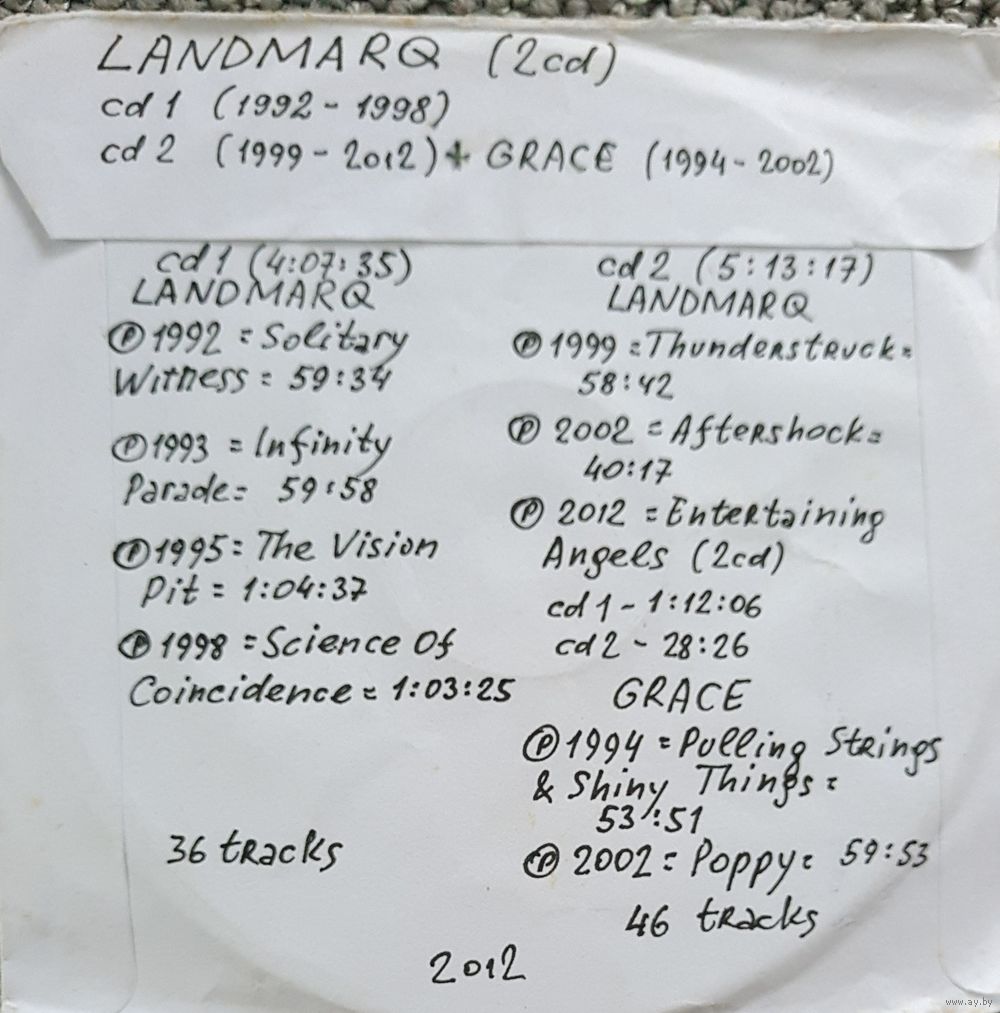 LANDMARQ (2cd)
cd 1 (1992 - 1998)
cd 2 (1999 - 2012) + GRACE (1994 - 2002)
cd 1 (4:07:35)
LANDMARQ
Ⓟ 1992 = Solitary
Witness = 59:34
Ⓟ 1993 = Infinity
Parade = 59:58
Ⓟ 1995 = The Vision
Pit = 1:04:37
Ⓟ 1998 = Science Of
Coincidence = 1:03:25
36 tracks
cd 2 (5:13:17)
LANDMARQ
Ⓟ 1999 = Thunderstruck =
58:42
Ⓟ 2002 = Aftershock =
40:17
Ⓟ 2012 = Entertaining
Angels (2cd)
cd 1 - 1:12:06
cd 2 - 28:26
GRACE
Ⓟ 1994 = Pulling Strings
& Shiny Things =
53:51
Ⓟ 2002 = Poppy = 59:53
46 tracks
2012
www.ay.by